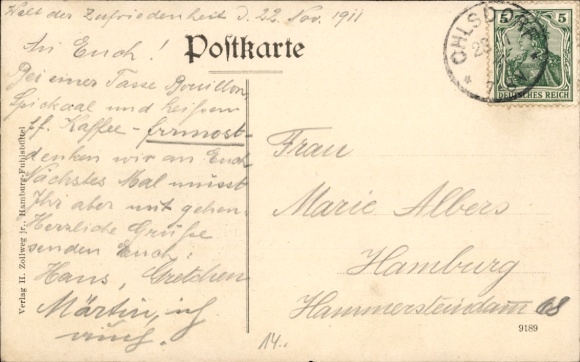 Welt der Zufriedenheit d. 22. Nov. 1911
An Euch!
Postkarte
Bei einer Tasse Bouillon,
Spickaal und heißem
ff. Kaffee -
denken wir an Euch
Nächstes Mal müsst
Ihr aber mit gehen.
Herzliche Grüße
senden Euch:
Hans, Gretchen
Martin, ich
auch.
Verlag H. Zollweg jr., Hamburg-Fuhlsbüttel
OHLSDORF
5 5
DEUTSCHES REICH
Frau
Marie Albers
Hamburg
Hammersteindamm 68
9189
14.